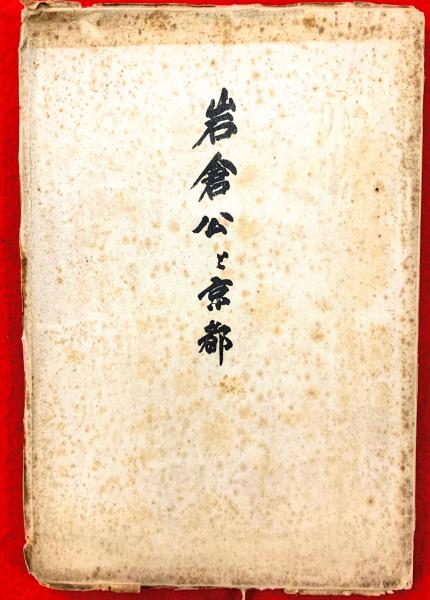 岩倉公と京都